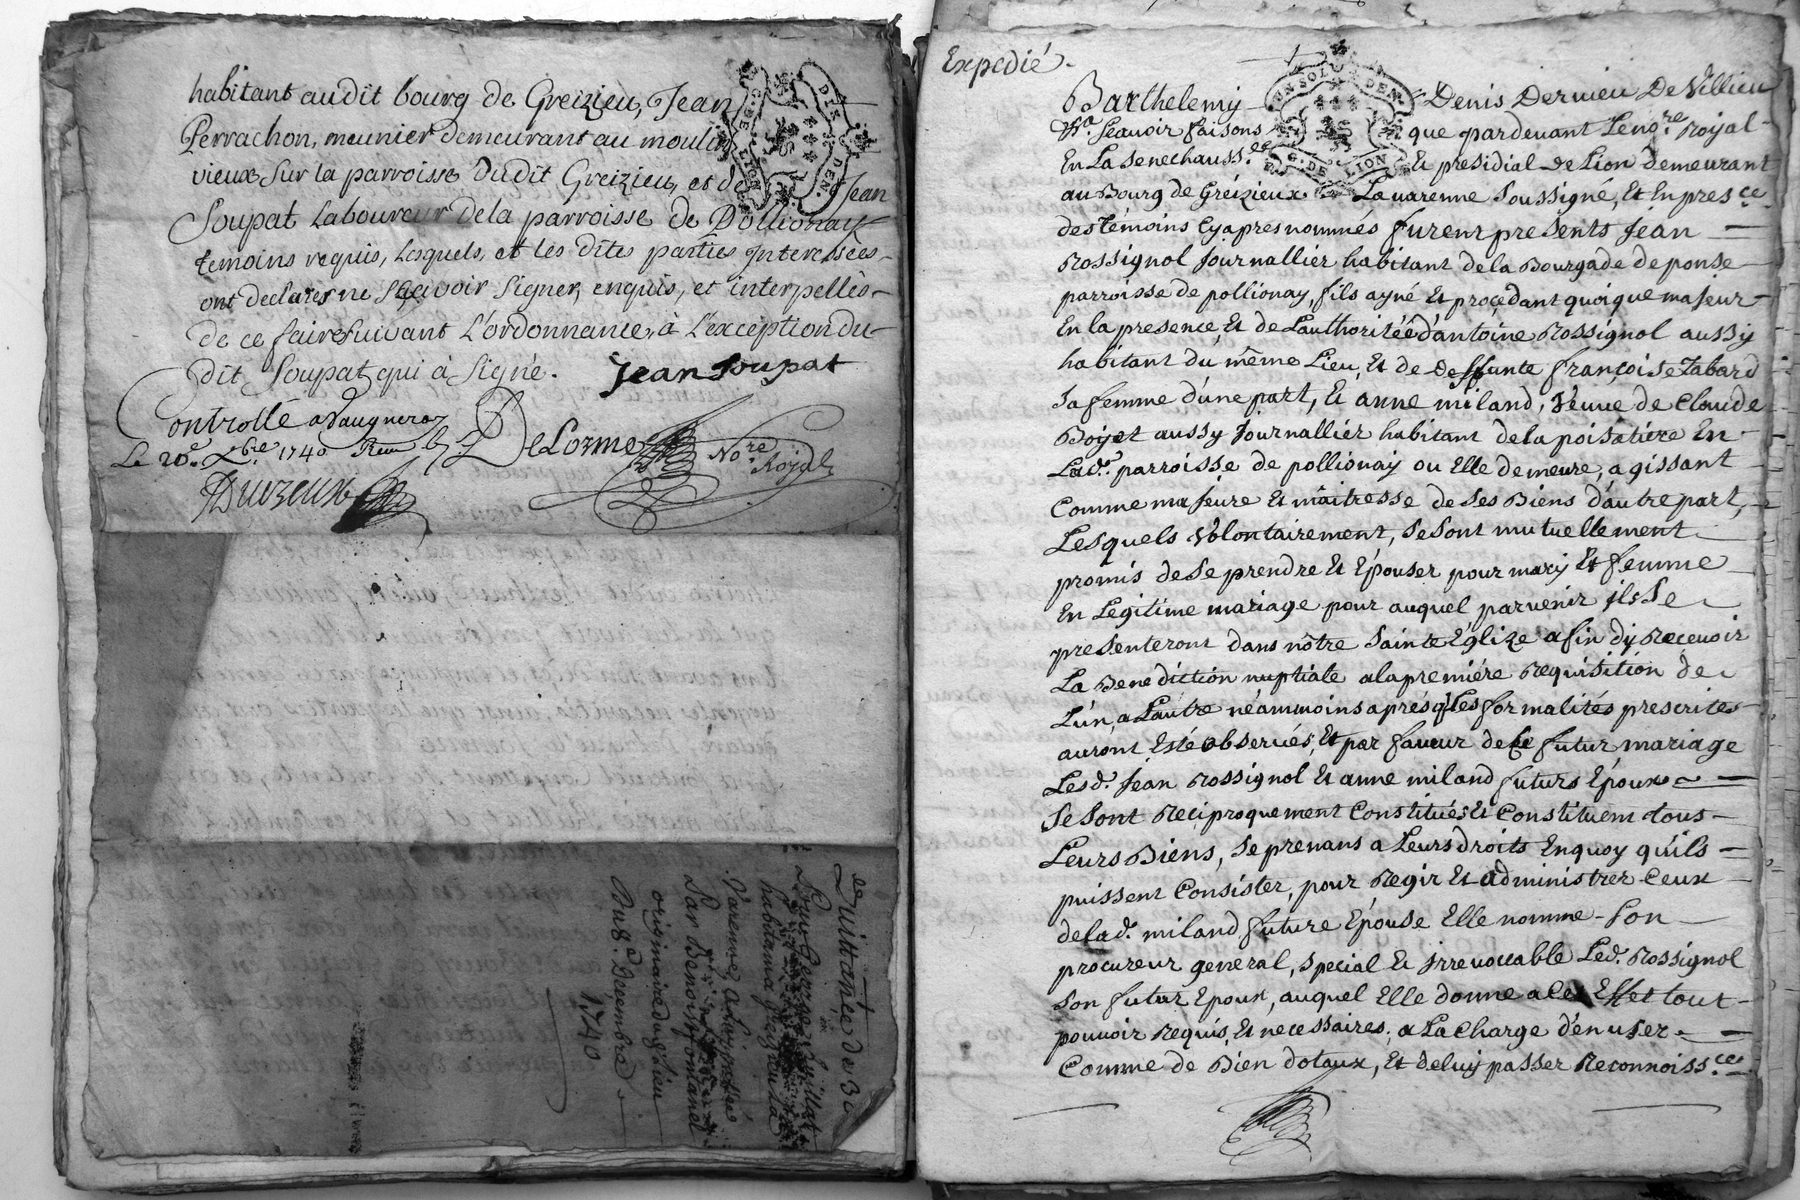 habitant audit bourg de Greizieu, Jean
Perrachon, meunier demeurant au moulin
vieux sur la parroisse dudit Greizieu, et de Jean
Soupat Laboureur de la parroisse de Pollionay
temoins requis, Lesquels, et les dites parties Interessèes
ont declarer ne Sçavoir Signer, enquis, et interpellès
de ce faire suivant L'ordonnance, à L'exception du
dit Soupat qui à Signé. Jean Soupat
Controllé a Vaugneray
Le 20e Xbre 1740
DeLorme Nore Royal
UN SOL 4 DEN.
G. DE LION
Quittance de 30
habitant a Greizieu La
Varenne
Par Benoist fontanel
originaire dudit lieu
Du 8e Decembre
1740
Expedié
Barthelemy Denis Dervieu De Villieu
Sçavoir faisons que pardevant Le nore Royal
En La senechaussée Et presidial de Lion demeurant
au Bourg de Gréizieux Lavarenne soussigné, Et En presce
des témoins Cy apres nommés furent presents Jean
Rossignol Journallier habitant de la Bourgade de ponse
parroisse de pollionay, fils ayné Et procedant quoique majeur
En la presence Et de L'authoritée d'antoine Rossignol aussy
habitant du même Lieu, Et de deffunte françoise Tabard
sa femme d'une part, Et anne miland, Veuve de Claude
Boyet aussy Journallier habitant de la poisatiere En
Lad. parroisse de pollionay ou Elle demeure, agissant
Comme majeure Et maitresse de ses Biens d'autre part,
Lesquels Volontairement, se sont mutuellement
promis de se prendre Et Épouser pour mary Et femme
En Legitime mariage pour auquel parvenir ils se
presenteront dans nôtre Sainte Églize afin d'y Recevoir
La Benediction nuptiale a la premiére Requisition de
L'un a Lautre néammoins aprés q. Les formalités prescrites
auront Esté observées, Et par faveur de Ce futur mariage
Lesd. Jean Rossignol Et anne miland futurs Époux
se sont Reciproquement Constitués Et Constituent tous
Leurs Biens, se prenans a Leurs droits En quoy qu'ils
puissent Consister, pour Regir Et administrer Ceux
de lad. miland future Épouse Elle nomme son
procureur general, special Et irrevoccable Led. Rossignol
son futur Epoux, auquel Elle donne a Cet Effet tout
pouvoir Requis, Et necessaires, a La Charge d'en user
Comme de Bien dotaux, Et de luy passer Reconnoissce